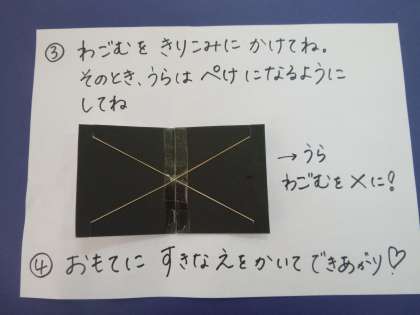 ③ わごむを きりこみに かけてね。
そのとき、うらは ぺけ になるように
してね
→ うら
わごむを ✕に!
④ おもてに すきなえをかいて できあがり♡